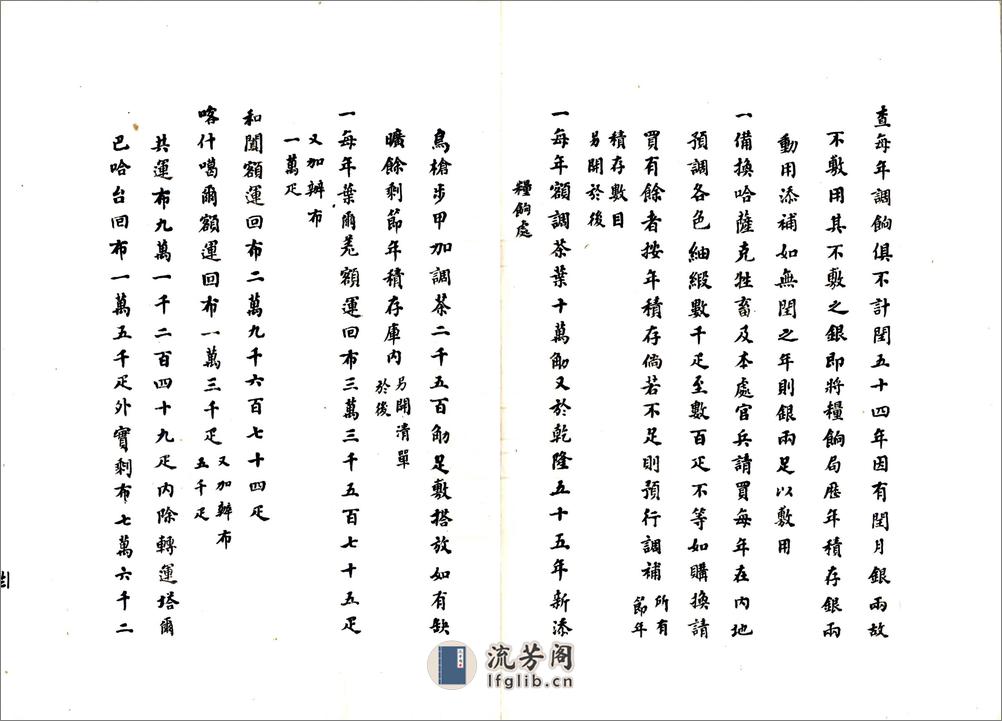 查每年調餉俱不計閏五十四年因有閏月銀兩故
不敷用其不敷之銀即將糧餉局歷年積存銀兩
動用添補如無閏之年則銀兩足以敷用
一備換哈薩克牲畜及本處官兵請買每年在內地
預調各色紬緞數千疋至數百疋不等如購換請
買有餘者按年積存倘若不足則預行調補所有節年
積存數目
另開於後
一每年額調茶葉十萬觔又於乾隆五十五年新添
糧餉處
鳥槍步甲加調茶二千五百觔足敷搭放如有缺
曠餘剩節年積存庫內另開清單於後
一每年葉爾羌額運回布三萬三千五百七十五疋
又加辦布
一萬疋
和闐額運回布二萬九千六百七十四疋
喀什噶爾額運回布一萬三千疋又加辦布五千疋
共運布九萬一千二百四十九疋內除轉運塔爾
巴哈台回布一萬五千疋外實剩布七萬六千二
流芳阁
lfglib.cn